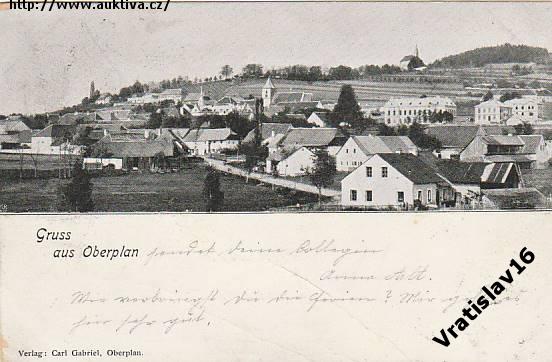 http://www.auktiva.cz/
Gruss
aus Oberplan sendet deine Collegin
Anna
Wie verbringst du die Ferien? Mir
sehr gut.
Verlag: Carl Gabriel, Oberplan.
Vratislav16